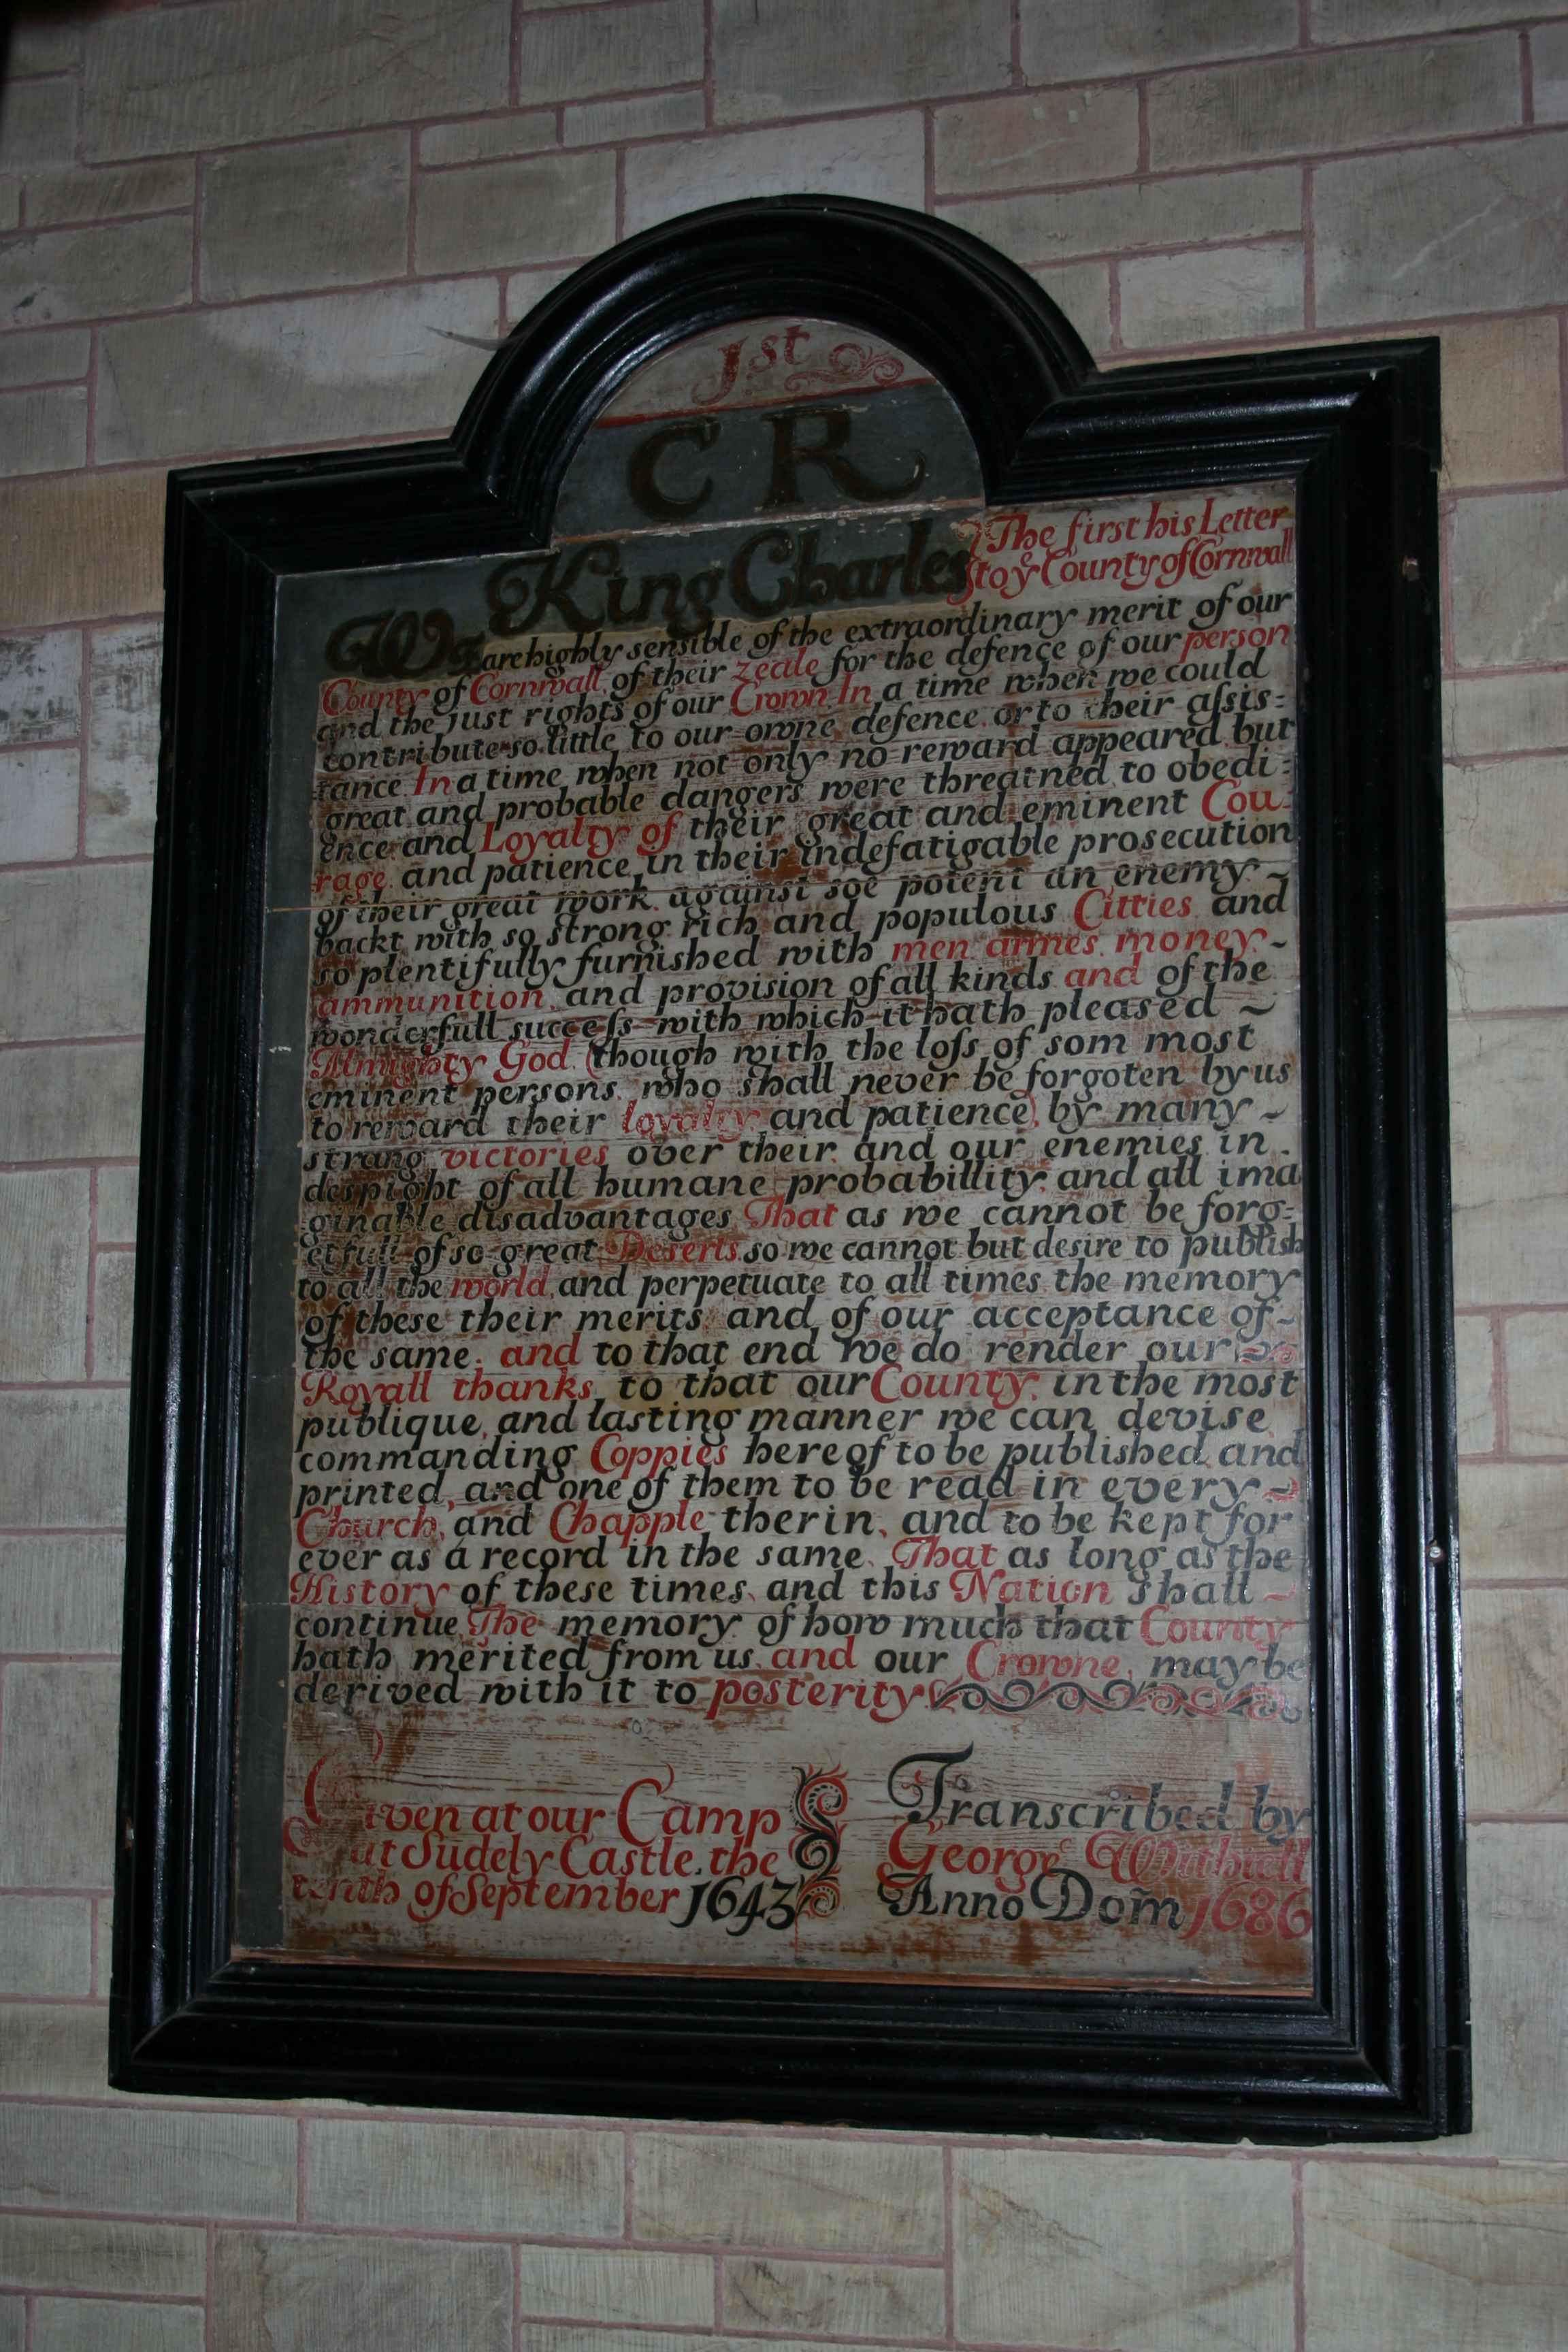 1st
C R
King Charles The first his Letter
to yᵉ County of Cornwall
We are highly sensible of the extraordinary merit of our
County of Cornwall, of their zeale for the defence of our person
and the just rights of our Crown. In a time when we could
contribute so little to our owne defence or to their assis=
tance In a time when not only no reward appeared but
great and probable dangers were threatned to obedi=
ence and Loyalty of their great and eminent Cou=
rage and patience in their indefatigable prosecution
of their great work against soe potent an enemy ~
backt with so strong rich and populous Citties and
so plentifully furnished with men armes money ~
ammunition and provision of all kinds and of the
wonderfull success with which it hath pleased ~
Almighty God (though with the loss of som most
eminent persons who shall never be forgoten by us
to reward their loyalty and patience) by many ~
strang victories over their and our enemies in
despight of all humane probabillity and all ima
ginable disadvantages That as we cannot be forg=
etfull of so great Deserts so we cannot but desire to publish
to all the world and perpetuate to all times the memory
of these their merits and of our acceptance of ~
the same. and to that end we do render our
Royall thanks to that our County in the most
publique, and lasting manner we can devise
commanding Coppies hereof to be published and
printed, and one of them to be read in every ~
Church, and Chapple therin, and to be kept for
ever as a record in the same. That as long as the
History of these times, and this Nation shall ~
continue The memory of how much that County
hath merited from us and our Crowne, may be
derived with it to posterity
Given at our Camp
at Sudely Castle. the
tenth of September 1643
Transcribed by
George
Anno Dom̃ 1686